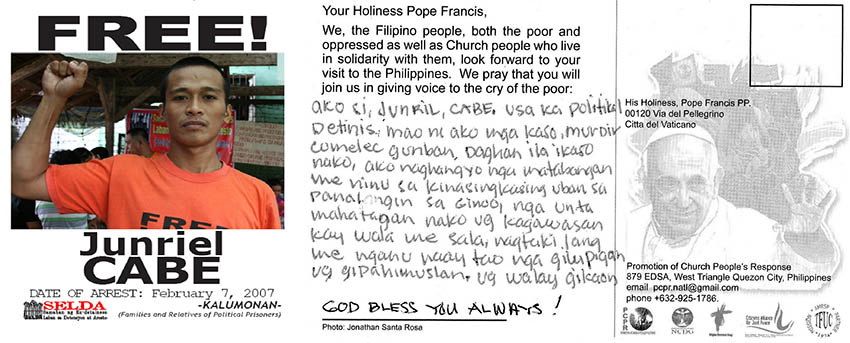 FREE!
Junriel
CABE
DATE OF ARREST: February 7, 2007
SELDA
-KALUMONAN-
(Families and Relatives of Political Prisoners)
Your Holiness Pope Francis,
We, the Filipino people, both the poor and
oppressed as well as Church people who live
in solidarity with them, look forward to your
visit to the Philippines. We pray that you will
join us in giving voice to the cry of the poor:
ako si, JUNRIL, CABE. usa ka political
Detinis, mao ni ako nga kaso, murdir
comelec gunban, Daghan ila ikaso
nako, ako naghangyo nga matabangan
me ninu sa kinasingkasing uban sa
panalangin sa Ginoo, nga unta
mahatagan nako ug kagawasan
kay wala me sala, nagtaki lang
me nganu naay tao nga gilupigan
ug gipahimuslan, ug walay gikaon
GOD BLESS YOU ALWAYS!
Photo: Jonathan Santa Rosa
His Holiness, Pope Francis PP.
00120 Via del Pellegrino
Citta del Vaticano
Promotion of Church People's Response
879 EDSA, West Triangle Quezon City, Philippines
email pcpr.natl@gmail.com
phone +632-925-1786.
PCPR
NCDP
TFUC